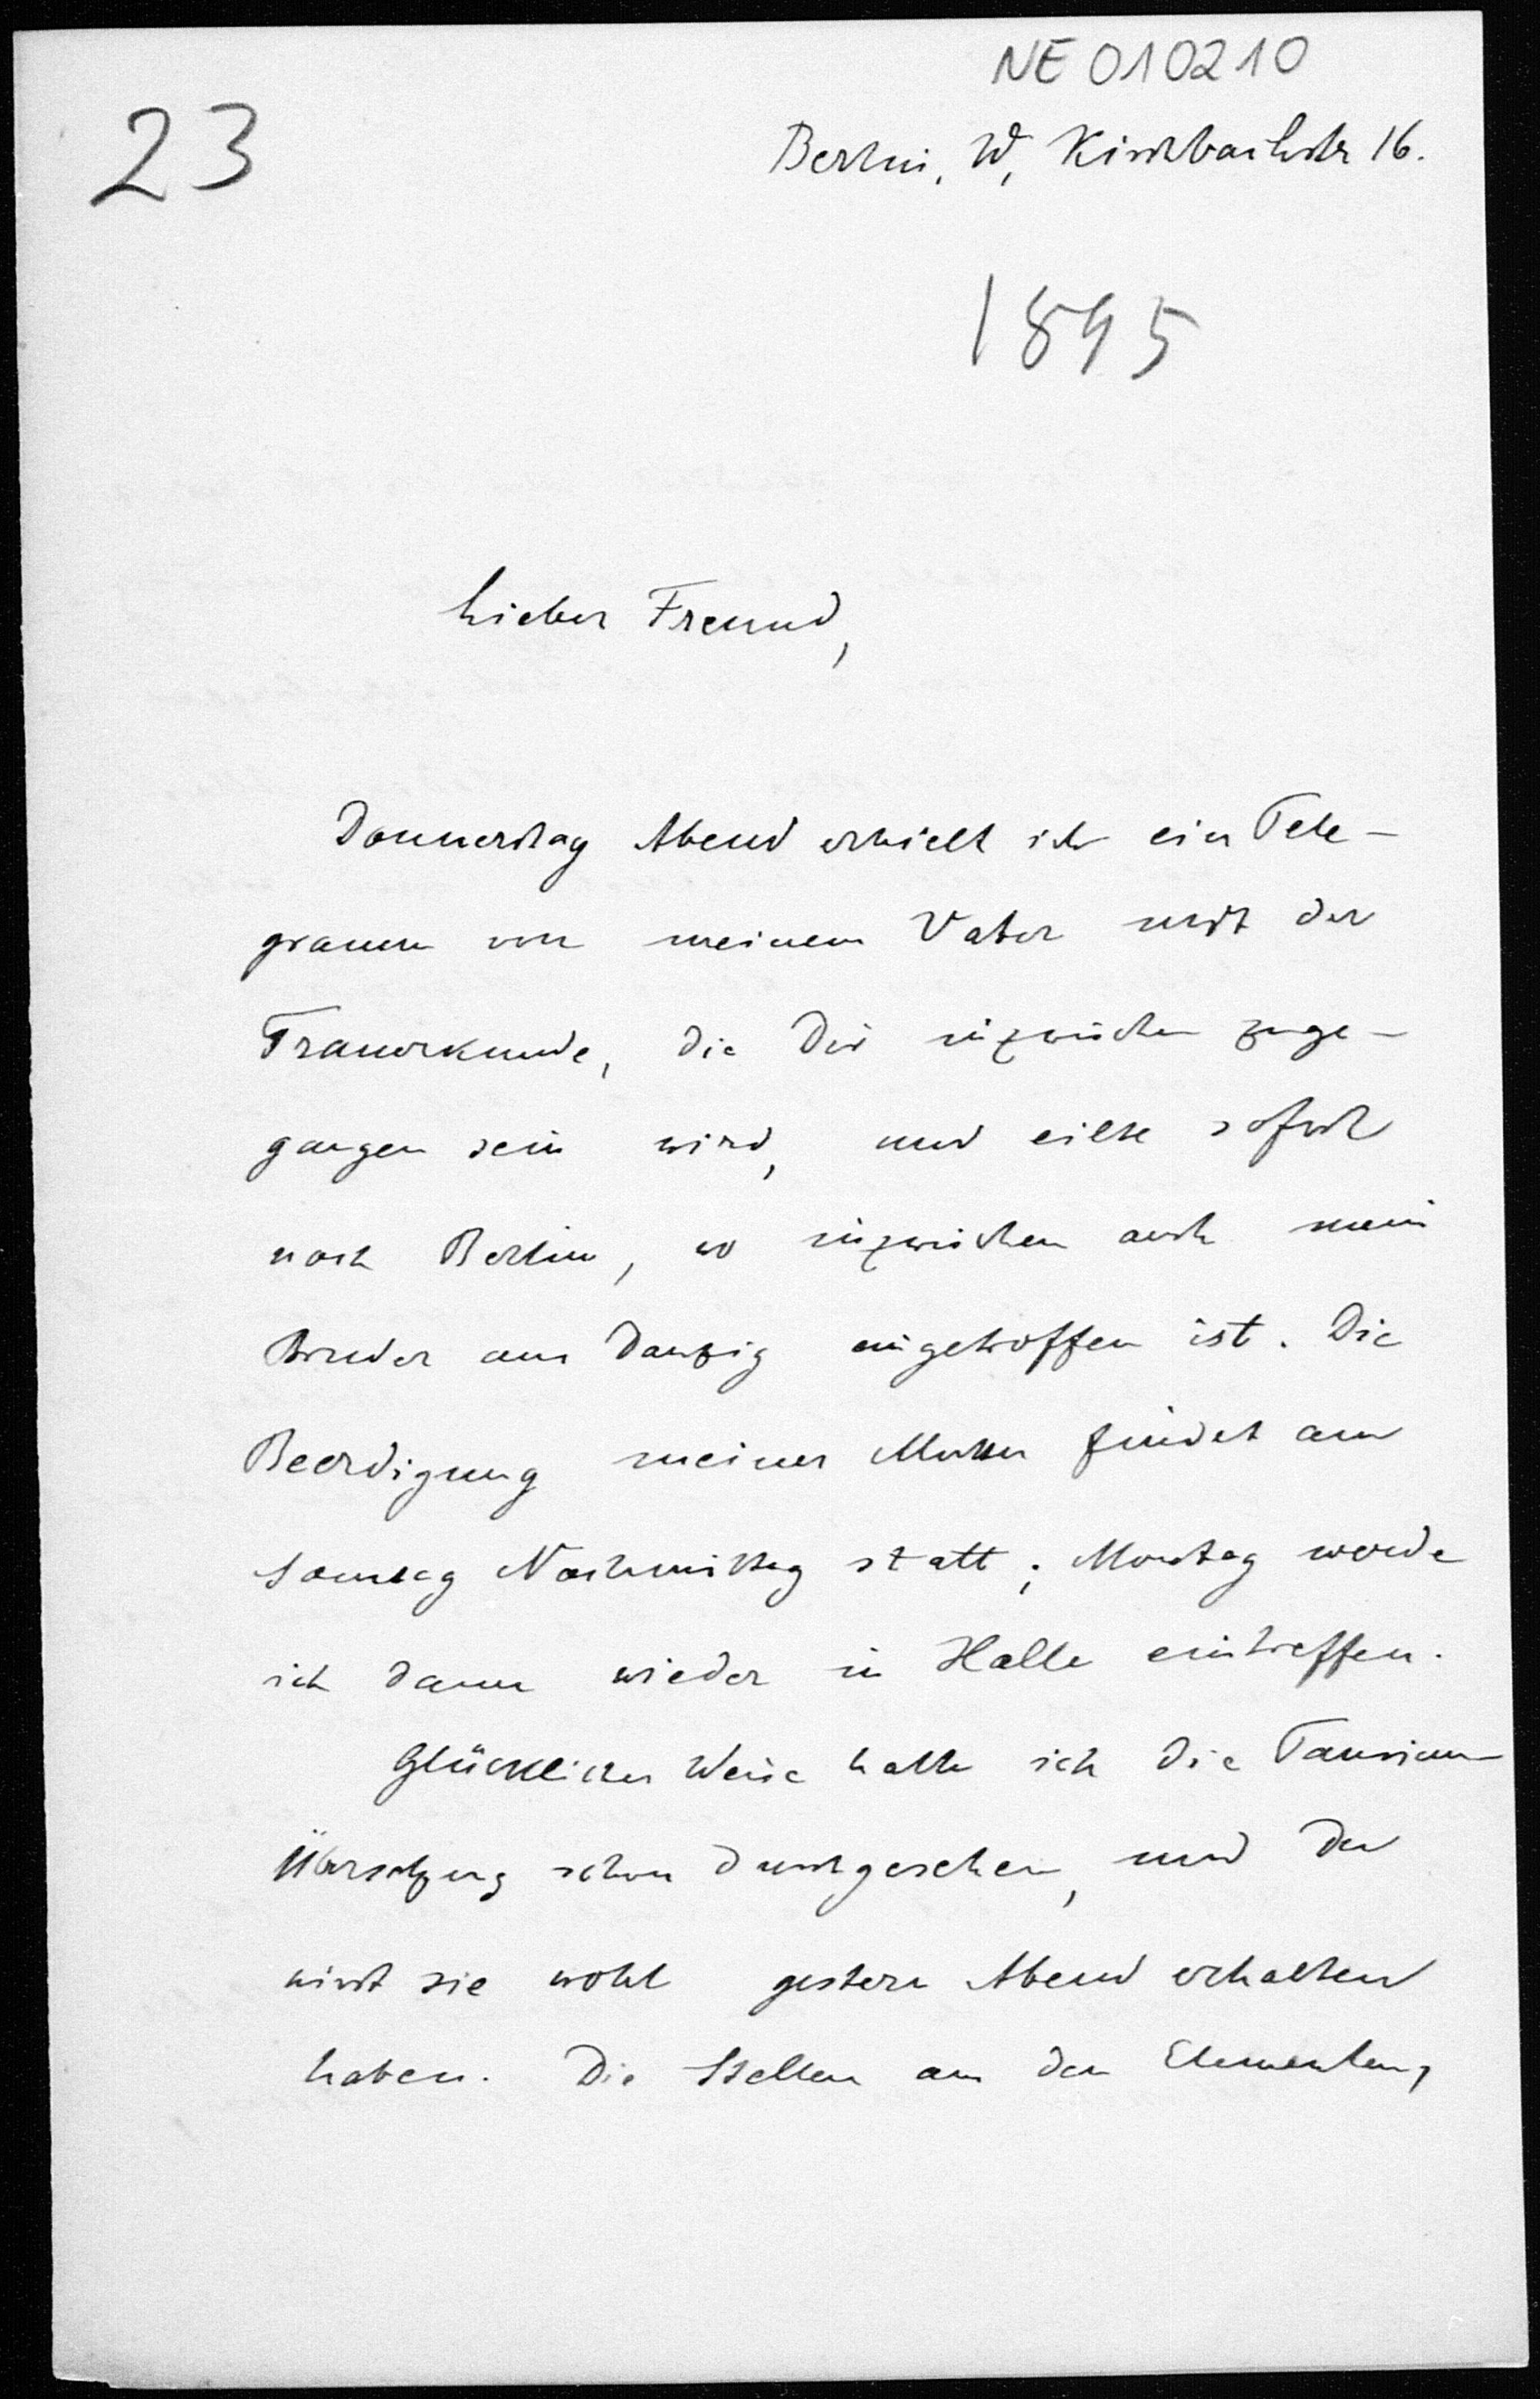 NE 010210
23
Berlin, W, Kirchbachstr 16.
1895
Lieber Freund,
Donnerstag Abend erhielt ich ein Tele-
gramm von meinem Vater mit der
Trauerkunde, die Dir inzwischen zuge-
gangen sein wird, und eilte sofort
nach Berlin, wo inzwischen auch mein
Bruder aus Danzig eingetroffen ist. Die
Beerdigung meiner Mutter findet am
Sonntag Nachmittag statt; Montag werde
ich dann wieder in Halle eintreffen.
Glücklicher Weise hatte ich die Taurinus-
Übersetzung schon durchgesehen, und Du
wirst sie wohl gestern Abend erhalten
haben. Die Stellen aus den Elementen,